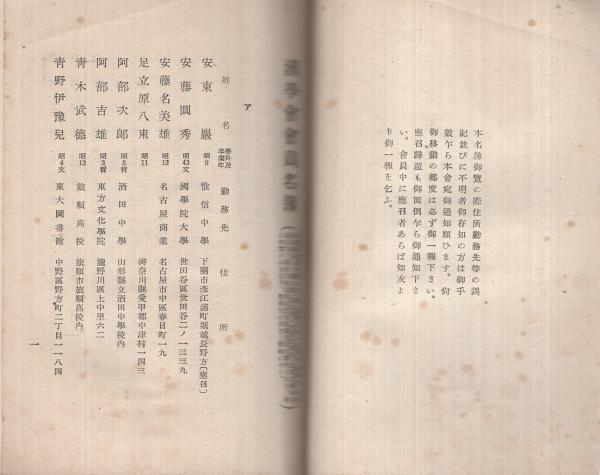 本名簿御覽の際住所勤務先等の誤
記並びに不明者御存知の方は御手
數乍ら本會宛御通知願ひます。尙
御移動の都度は必ず御一報下さい。
應召歸還も御面倒乍ら御通知下さ
い。會員中に應召者あらば知友よ
り御一報を乞ふ。
漢學會會員名簿
ア
姓名 學科及卒業年 勤務先 住所
安東巖 昭9 惟信中學 下關市彥江浦町堀越長野方〔應召〕
安藤圓秀 明43文 國學院大學 世田谷區世田谷二ノ一三三九
安藤名美雄 昭13 名古屋商業 名古屋市中區春日町一九
足立原八束 昭11 神奈川縣愛甲郡中津村一四三
阿部次郞 昭5哲 酒田中學 山形縣立酒田中學校內
阿部吉雄 昭3哲 東方文化學院 瀧野川區上中里六二
靑木武德 昭13 旅順高校 旅順市旅順高校內
靑野伊豫兒 昭4文 東大圖書館 中野區野方町二丁目一一八四
一